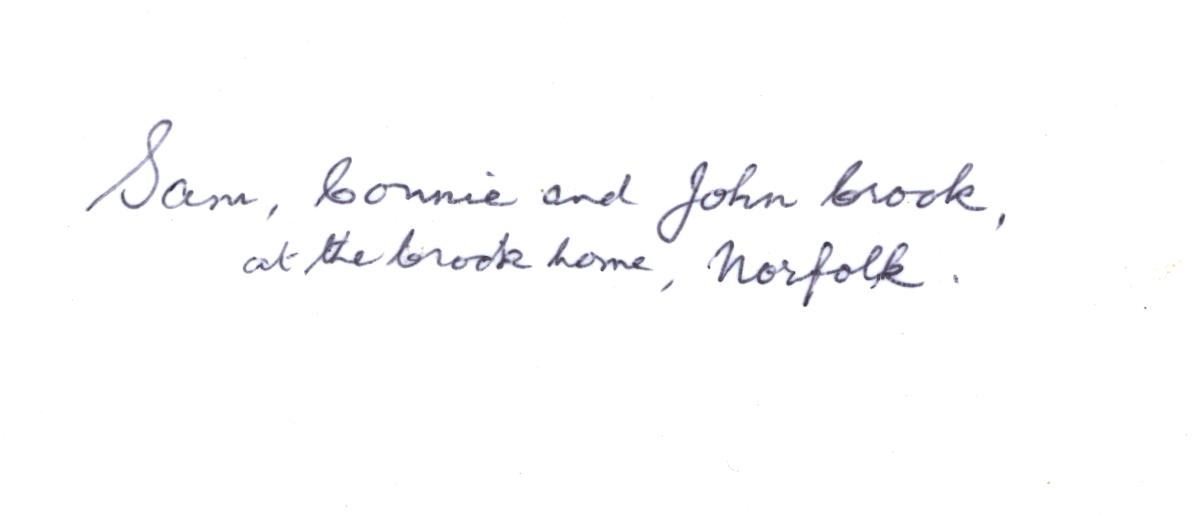 Sam, Connie and John Crook,
at the Crook home, Norfolk.